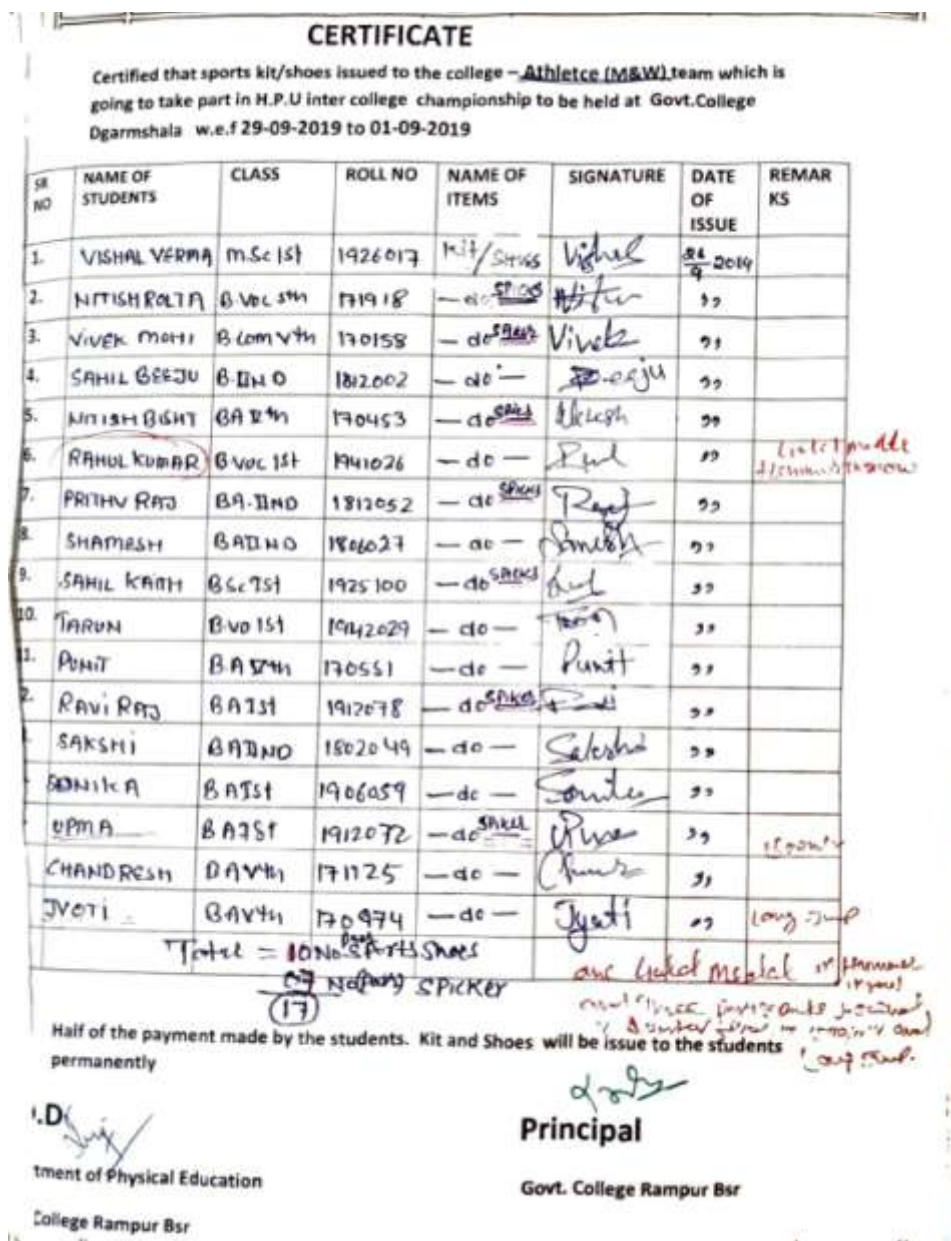 CERTIFICATE
Certified that sports kit/shoes issued to the college – Athletce (M&W) team which is
going to take part in H.P.U inter college championship to be held at Govt.College
Dgarmshala w.e.f 29-09-2019 to 01-09-2019
SR NO NAME OF STUDENTS CLASS ROLL NO NAME OF ITEMS SIGNATURE DATE OF ISSUE REMARKS
1. VISHAL VERMA M.Sc Ist 1926017 Kit/Shoes Vishal 2019
2. NITISH ROLTA B.Voc 5th 171918 — do ,,
3. VIVEK MOHI B Com Vth 170158 — do Vivek ,,
4. SAHIL BEEJU B.IIND 1812002 — do — Beeju ,,
5. NITISH BISHT BA Vth 170453 — do ,,
6. RAHUL KUMAR B VOC Ist 1941026 — do — ,,
7. PRITHV RAJ BA.IIND 1812052 — do SPIKES ,,
8. SHAMESH BAIIND 1806027 — do — ,,
9. SAHIL BSc Ist 1925100 — do ,,
10. TARUN B.Vo Ist — do — ,,
11. PUNIT BA Vth 170551 — do — Punit ,,
2. RAVI RAJ BA Ist 1912078 — do SPIKES ,,
SAKSHI BAIIND 1802049 — do — Sakshi ,,
SONIKA BA Ist 1906059 — do — ,,
UPMA BA Ist 1912072 — do ,,
CHANDRESH BA Vth 171125 — do — ,,
JYOTI BA Vth 170974 — do — Jyoti ,, Long Jump
Total = 10 No Sports Shoes
07 No SPICKEY
17
Half of the payment made by the students. Kit and Shoes will be issue to the students
permanently
.D
Principal
tment of Physical Education
Govt. College Rampur Bsr
College Rampur Bsr